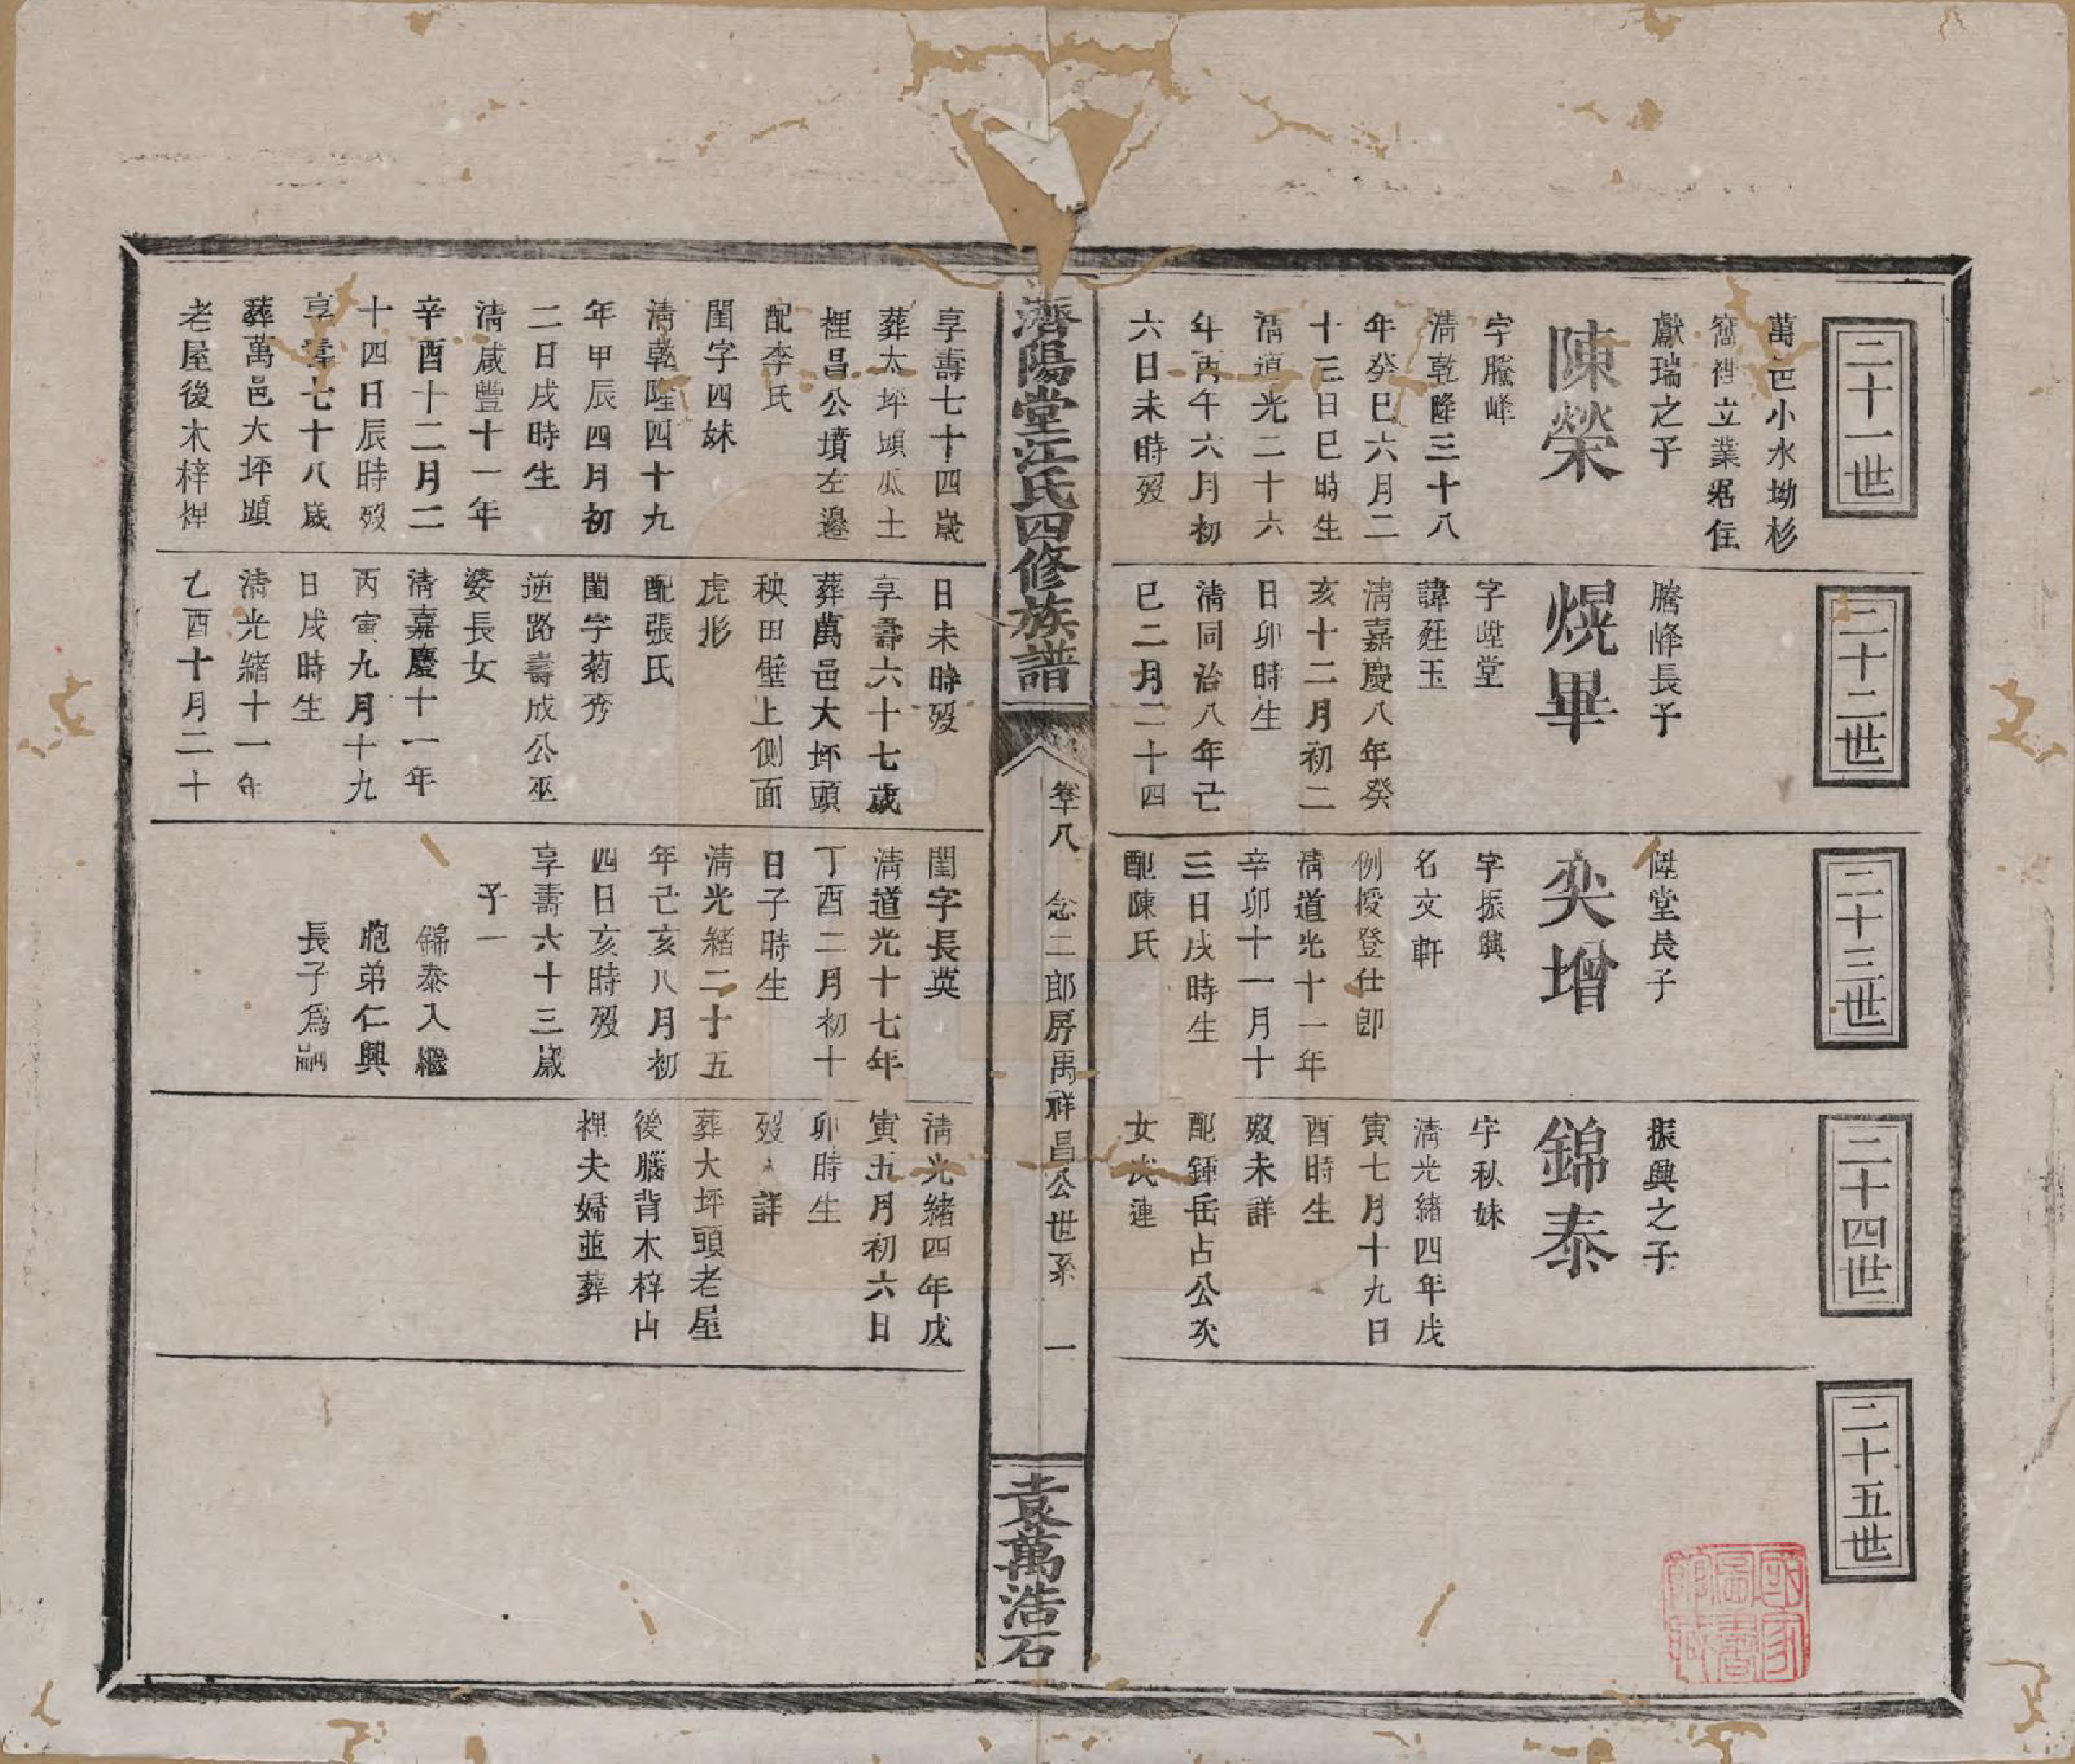 二十一世
萬邑小水坳杉
窩裡立業居住
獻瑞之子
陳榮
字騰峰
清乾隆三十八
年癸巳六月二
十三日巳時生
清道光二十六
年丙午六月初
六日未時歿
享壽七十四歲
葬大坪頭瓜土
裡昌公墳左邊
配李氏
閨字四妹
清乾隆四十九
年甲辰四月初
二日戌時生
清咸豐十一年
辛酉十二月二
十四日辰時歿
享壽七十八歲
葬萬邑大坪頭
老屋後木梓裡
二十二世
騰峰長子
熀畢
字陞堂
諱廷玉
清嘉慶八年癸
亥十二月初二
日卯時生
清同治八年己
巳二月二十四
日未時歿
享壽六十七歲
葬萬邑大坏頭
秧田壁上側面
虎形
配張氏
閨字菊秀
逆路壽成公巫
婆長女
清嘉慶十一年
丙寅九月十九
日戌時生
清光緒十一年
乙酉十月二十
二十三世
陞堂長子
奕增
字振興
名文軒
例授登仕郎
清道光十一年
辛卯十一月十
三日戌時生
配陳氏
閨字長英
清道光十七年
丁酉二月初十
日子時生
清光緒二十五
年己亥八月初
四日亥時歿
享壽六十三歲
子一
錦泰入繼
胞弟仁興
長子為嗣
二十四世
振興之子
錦泰
字秋妹
清光緒四年戊
寅七月十九日
酉時生
歿未詳
配鍾岳占公次
女氏連
清光緒四年戊
寅五月初六日
卯時生
歿 詳
葬大坪頭老屋
後腦背木梓山
裡夫婦並葬
二十五世
濟陽堂江氏四修族譜
卷十八 念二郎房禹祥昌公世系 一
袁萬浩石
國家圖書館藏